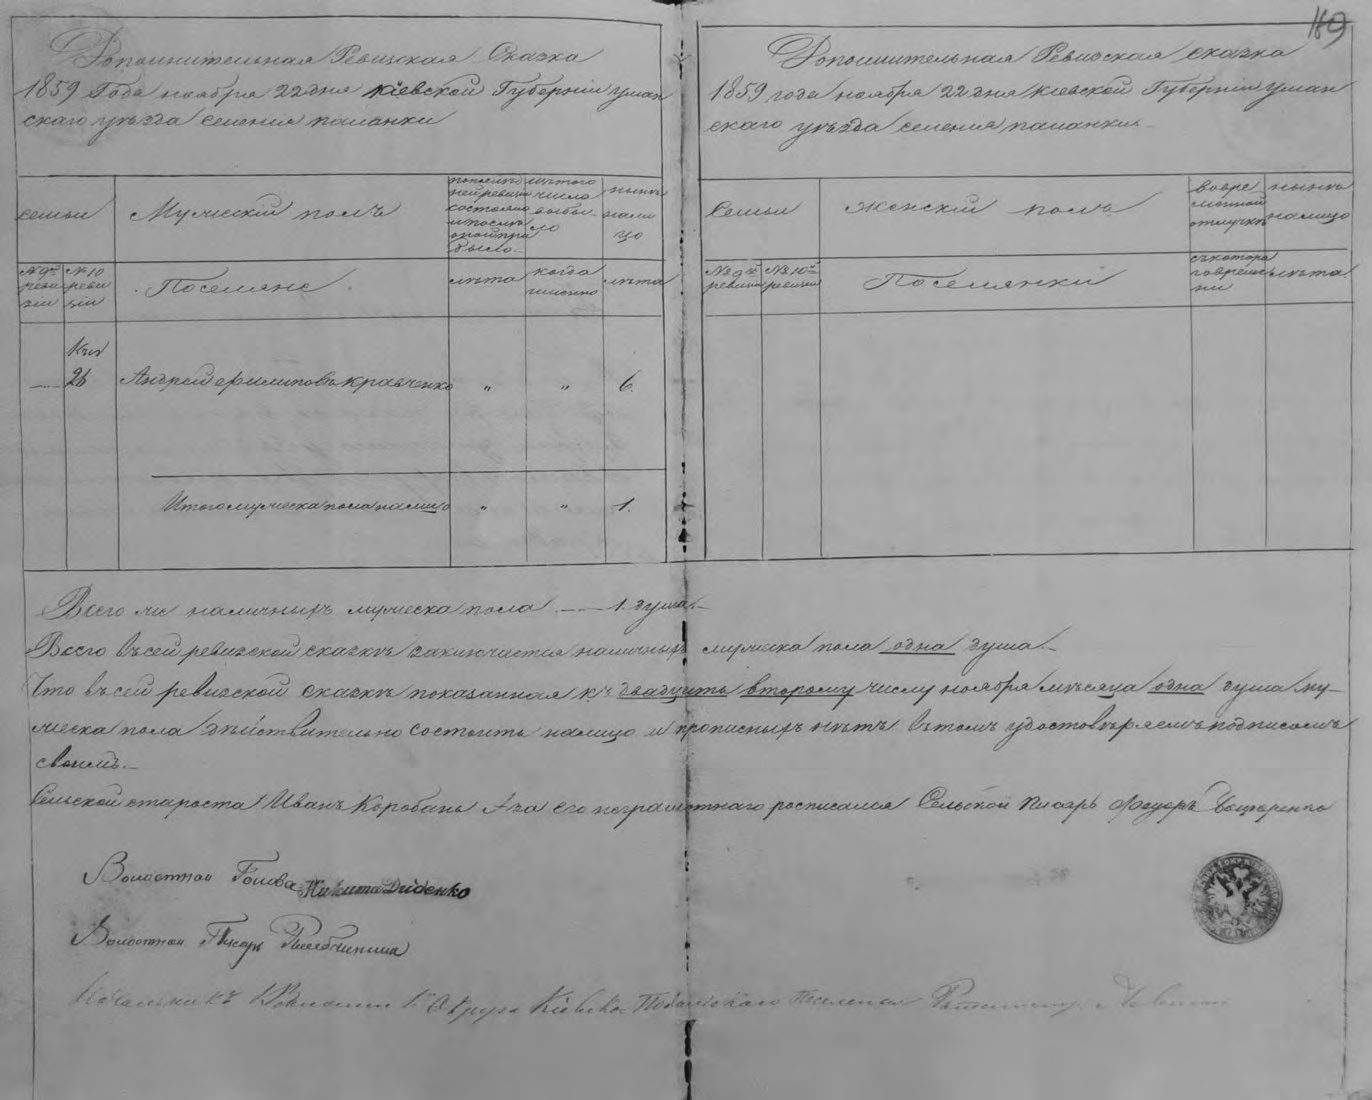 169
Дополнительная Ревизская Сказка
1859 Года ноября 22 дня Кіевской Губерніи уман
скаго уѣзда селения паланки
семьи
Мужескій полъ
выбы-
ло
нынѣ
нали
цо
№ 9й
реви
зіи
№ 10
реви
зіи
Поселяне
лѣта
когда
именно
лѣта
26
Андрей Филиповъ Кравченко
"
"
6.
Итого мужеска пола налицо
"
"
1.
Дополнительная Ревизская сказка
1859 года ноября 22 дня Кіевской Губерніи уман
скаго уѣзда селения паланки
Семьи
Женскій полъ
вовре
менной
отлучкѣ
нынѣ
налицо
№ 9й
ревизіи
№ 10й
ревизіи
Поселянки
съ котора
го време
ни
лѣта
Всего же наличныхъ мужеска пола 1. душа.
Всего въ сей ревизской сказкѣ заключается наличныхъ мужеска пола одна душа.
Что въ сей ревизской сказкѣ показанная къ двадцать второму числу ноября мѣсяца одна душа му-
жеска пола дѣйствительно состоитъ налицо и прописныхъ нѣтъ въ томъ удостовѣряемъ подписомъ
своимъ.
Сельской староста Иванъ Коробань а за его неграмотнаго росписался Сельской Писарь Федоръ
Волостной Голова Никита Диденко
Волостной Писарь
Начальникъ Волости Округа Кіевско Подольскаго Поселения Ротмистръ